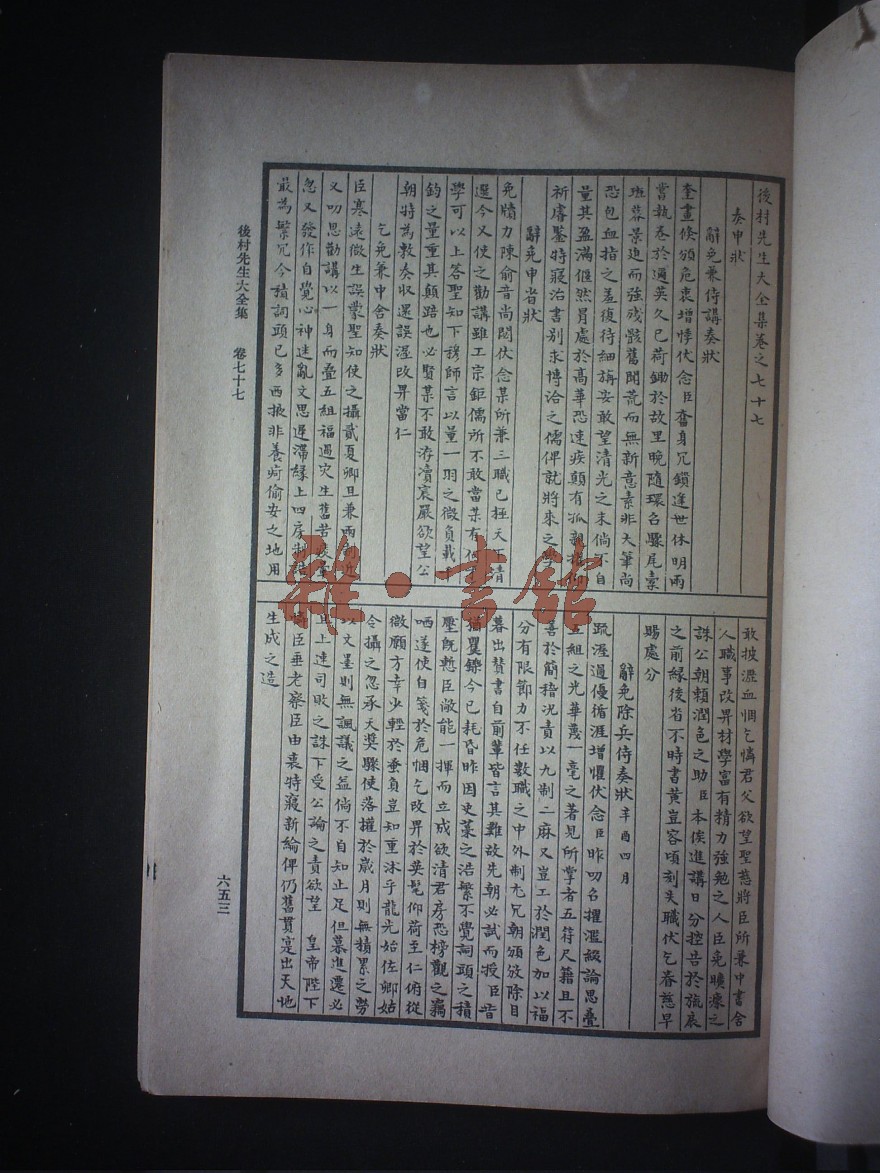 後村先生大全集卷之七十七
奏申狀
辭免兼侍講奏狀
奎畫倏頒危衷增悸伏念臣奮身冗鎖逢世休明兩
嘗執卷於邇英久已荷鋤於故里晚隨環召驟尾橐
班暮景迫而強殘骸舊聞荒而無新意素非大筆尚
恐包血指之羞復侍細旃安敢望清光之末倘不自
量其盈滿偃然冒處於高華恐速疾顛有孤親擢仰
祈膚鑒特寢治書別求博洽之儒俾就將來之學
辭免申省狀
免牘力陳俞音尚閟伏念某所兼三職已極天下清
選今又使之勸講雖工宗鉅儒所不敢當某有何
學可以上答聖知下穆師言以量一羽之微負載
鈞之量重其顛踣也必賢某不敢洊瀆宸嚴欲望公
朝特為敷奏收還誤渥改畀當仁
乞免兼中舍奏狀
臣寒遠微生誤蒙聖知使之攝貳夏卿且兼兩制近
又叨恩勸講以一身而疊五組福過災生舊苦痰暈
忽又發作自覺心神迷亂文思遲滯緣上四房制誥
最為繁冗今積詞頭已多西掖非養疴偷安之地用
敢披瀝血悃乞憐君父欲望聖慈將臣所兼中書舍
人職事改畀材學富有精力強勉之人臣免曠瘝之
誅公朝賴潤色之助臣本俟進講日分控告於旒扆
之前緣後省不時書黃豈容頃刻失職伏乞睿慈早
賜處分
辭免除兵侍奏狀 辛酉四月
疏涯過優循涯增懼伏念臣昨叨召擢濫綴論思疊
五組之光華蔑一毫之著見所掌者五符尺籍且不
善於簡稽況責以九制二麻又豈工於潤色加以福
分有限節力不任數職之中外制尤冗朝頒放除目
暮出贊書自前輩皆言其難故先朝必試而授臣昔
猶矍鑠今已耗昏昨因吏葉之浩繁不覺詞頭之積
壓既慙臣敵能一揮而立成欲清君房恐榜觀之竊
哂遂使自箋於危悃乞改畀於英髦仰荷至仁俯從
微願方幸少輕於垂負豈知重沐乎龍光始佐卿姑
令攝之忽承天獎驟使落權於歲月則無積累之勞
以文墨則無諷議之益倘不自知止足但慕進遷必
且上速司敗之誅下受公論之責欲望 皇帝陛下
臣垂老察臣由衷特寢新綸俾仍舊貫寔出天地
生成之造
後村先生大全集 卷七十七
六五三
雜·書館